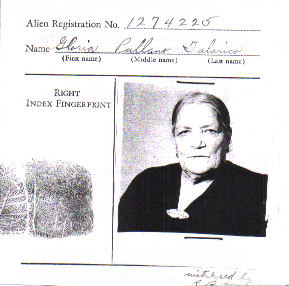 Alien Registration No. 1274225
Name Gloria Pullano Talarico
(First name) (Middle name) (Last name)
RIGHT
INDEX FINGERPRINT
witnessed by